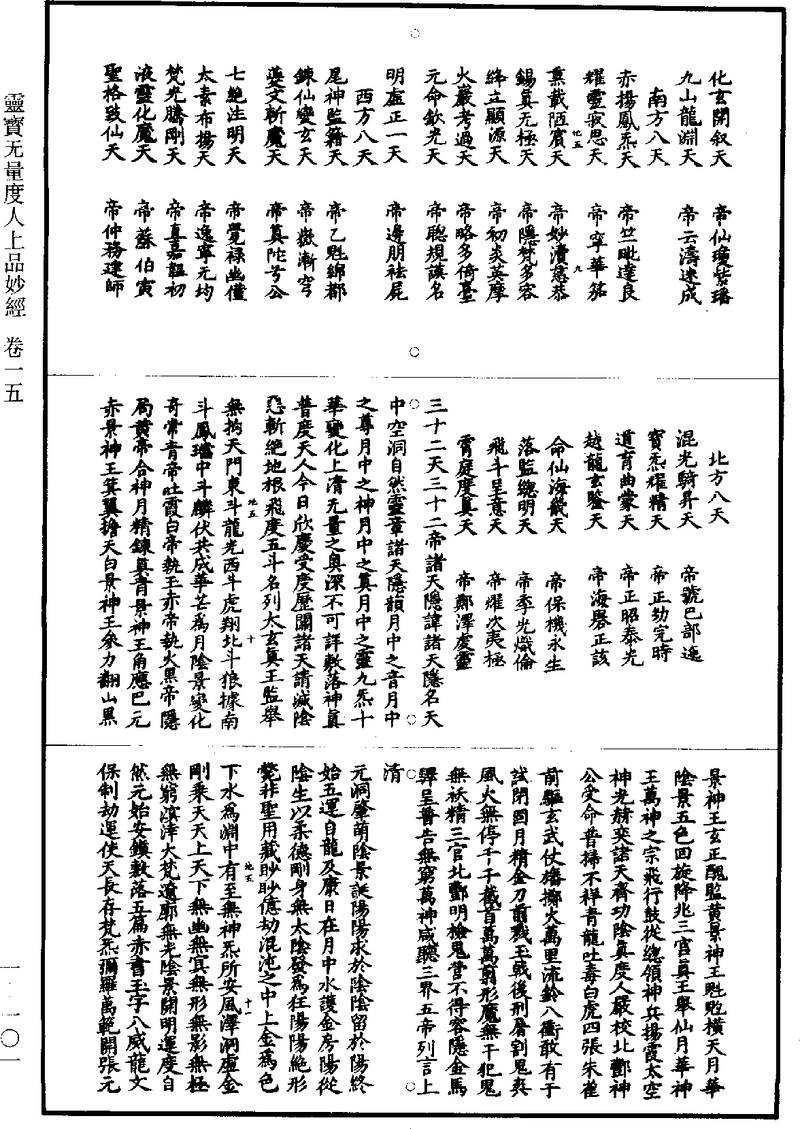 靈寶无量度人上品妙經　卷一五
化玄開叙天　帝仙瓊紫璠
九山龍淵天　帝云濤速成
南方八天
赤揚鳳炁天　帝竺毗達良
耀靈寂思天　帝寧華茲
地五　九
熏載陋賓天　帝妙濟慈恭
錫真无極天　帝隱梵多容
絳立顯源天　帝初炎英摩
火巖考過天　帝略多倚臺
元命欽光天　帝聰規謨名
明虛正一天　帝邊朋祛屍
西方八天
尾神監籍天　帝乙魁綿都
鍊仙變玄天　帝嶽漸穹
蔓文斬魔天　帝真陀兮公
七絕注明天　帝覺祿幽僮
太素布揚天　帝逸寧元均
梵光騰剛天　帝真嘉韞初
液靈化魔天　帝蘇伯寅
聖格致仙天　帝仲務建師
北方八天
混光騎昇天　帝號巴部逸
寶炁耀精天　帝正劫完時
道育曲蒙天　帝正昭泰光
越龍玄鑒天　帝海譽正該
命仙海嶽天　帝保機永生
落監總明天　帝季光熾倫
飛斗呈意天　帝耀次夷極
霄庭度真天　帝鄭澤虔靈
三十二天三十二帝諸天隱諱諸天隱名天
中空洞自然靈章諸天隱韻月中之音月中
之尊月中之神月中之真月中之靈九炁十
華變化上清无量之奧深不可詳敷落神真
普度天人今日欣慶受度歷關諸天請滅陰
惡斬絕地根飛度五斗名列太玄真王監舉
無拘天門東斗龍光西斗虎翔北斗狼據南
地五　十
斗鳳璿中斗麟伏共成華芒爲月陰景變化
奇常青帝吐霞白帝執玉赤帝執火黑帝隱
局黃帝合神月精鍊真青景神王角應巴元
赤景神王箕翼擔天白景神王參力翻山黑
景神王玄正醜監黃景神王魁魒橫天月華
陰景五色回旋降兆三宮真王舉仙月華神
王萬神之宗飛行鼓從總領神兵揚霞太空
神光赫奕諸天齊功陰真度人嚴校北酆神
公受命普掃不祥青龍吐毒白虎四張朱雀
前驅玄武仗幡擲火萬里流鈴八衝敢有干
試閉固月精金刀前戮玉戟後刑屠割鬼爽
風火無停千千截首萬萬剪形魔無干犯鬼
無祅精三官北酆明檢鬼營不得容隱金馬
驛呈普告無窮萬神咸聽三界五帝列言上
清
元洞肇萌陰景誕陽陽求於陰陰留於陽終
始五運自龍及康日在月中水護金房陽從
陰生以柔德剛身無太陰發爲狂陽陽絕形
斃非聖用藏眇眇億劫混沌之中上金爲色
下水爲淵中有至無神炁所安風澤洞虛金
地五　十一
剛乘天天上天下無幽無冥無形無影無極
無窮溟涬大梵遼廓無光陰景開明運度自
然元始安鎮敷落五篇赤書玉字八威龍文
保制劫運使天長存梵炁彌羅萬範開張元
一——一〇一